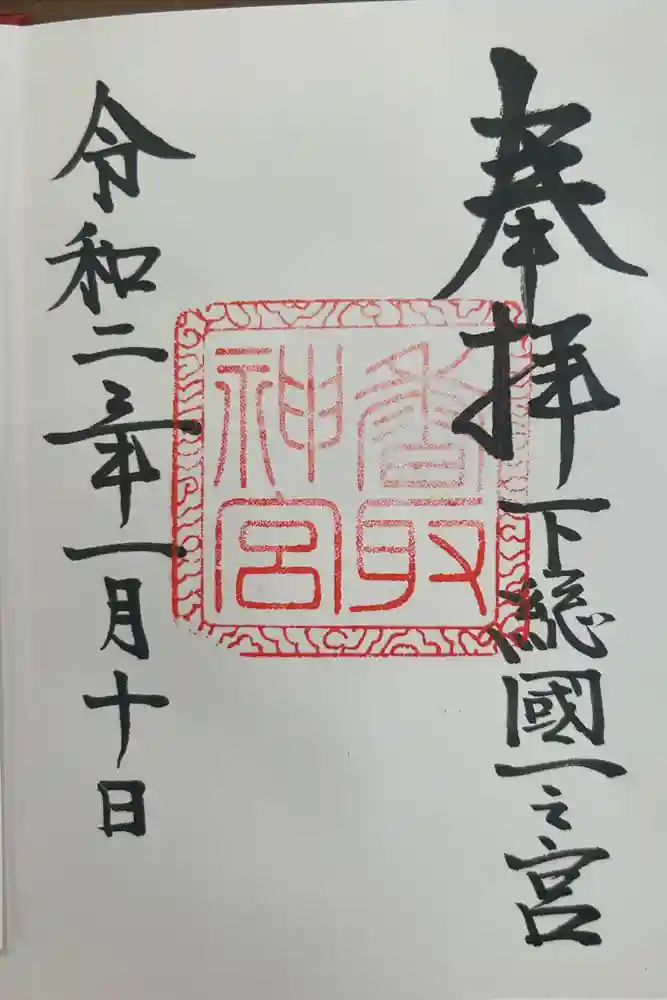 奉拝 下総國一之宮
香取
神宮
令和二年一月十日